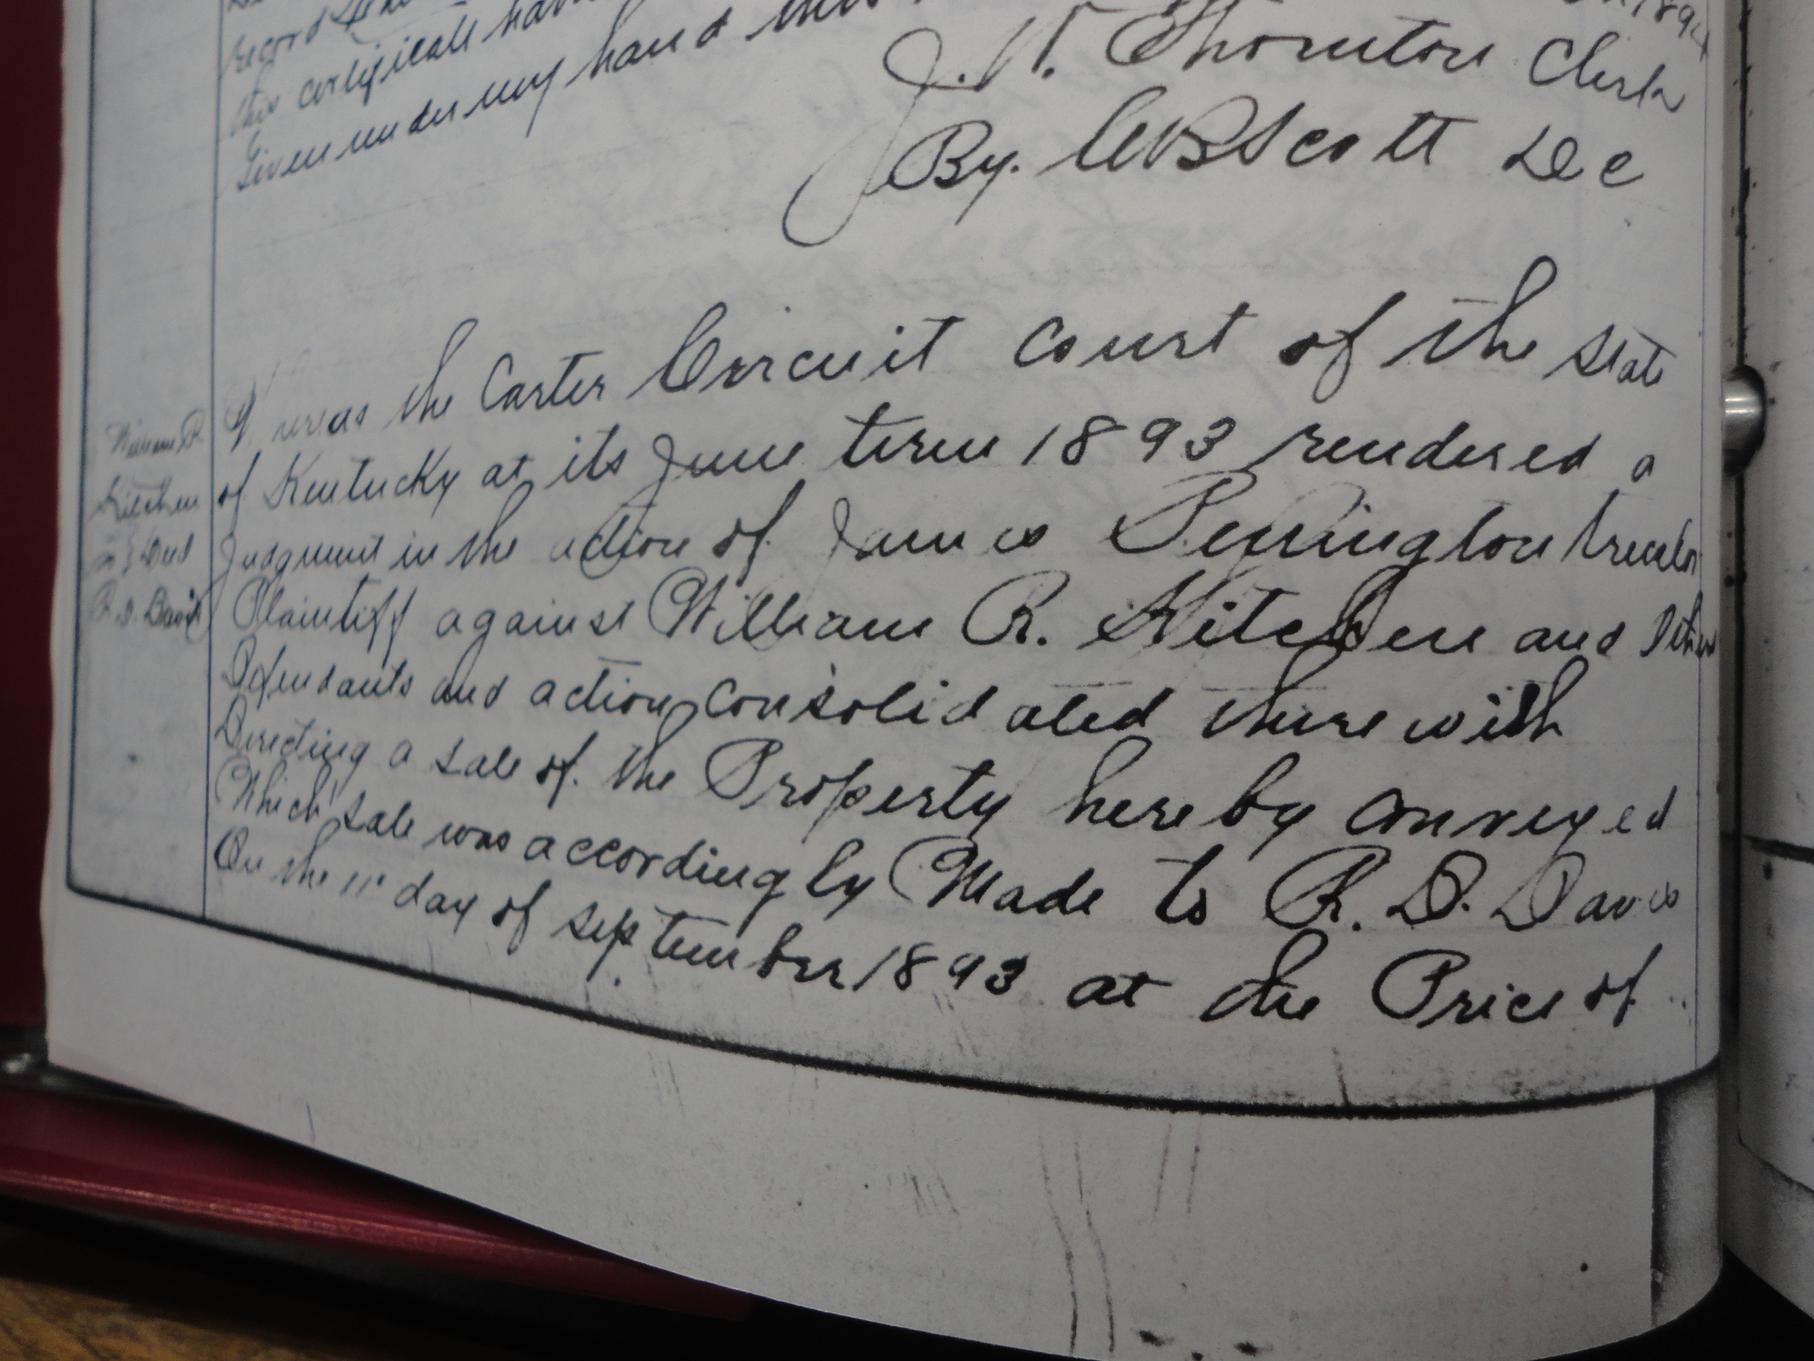 record
this certificate have
Given under my hand this 1894
J. W. Thornton Clerk
By. WBScott D C
Whereas the Carter Circuit Court of the State
of Kentucky at its June term 1893 rendered a
Judgment in the action of James Pennington
Plaintiff against William R. Kitchen and Others
Defendants and action consolidated there with
Directing a sale of. the Property hereby conveyed
Which sale was accordingly Made to R. D. Davis
On the 11" day of September 1893 at the Price of
William R.
Kitchen
Deed
R. D. Davis